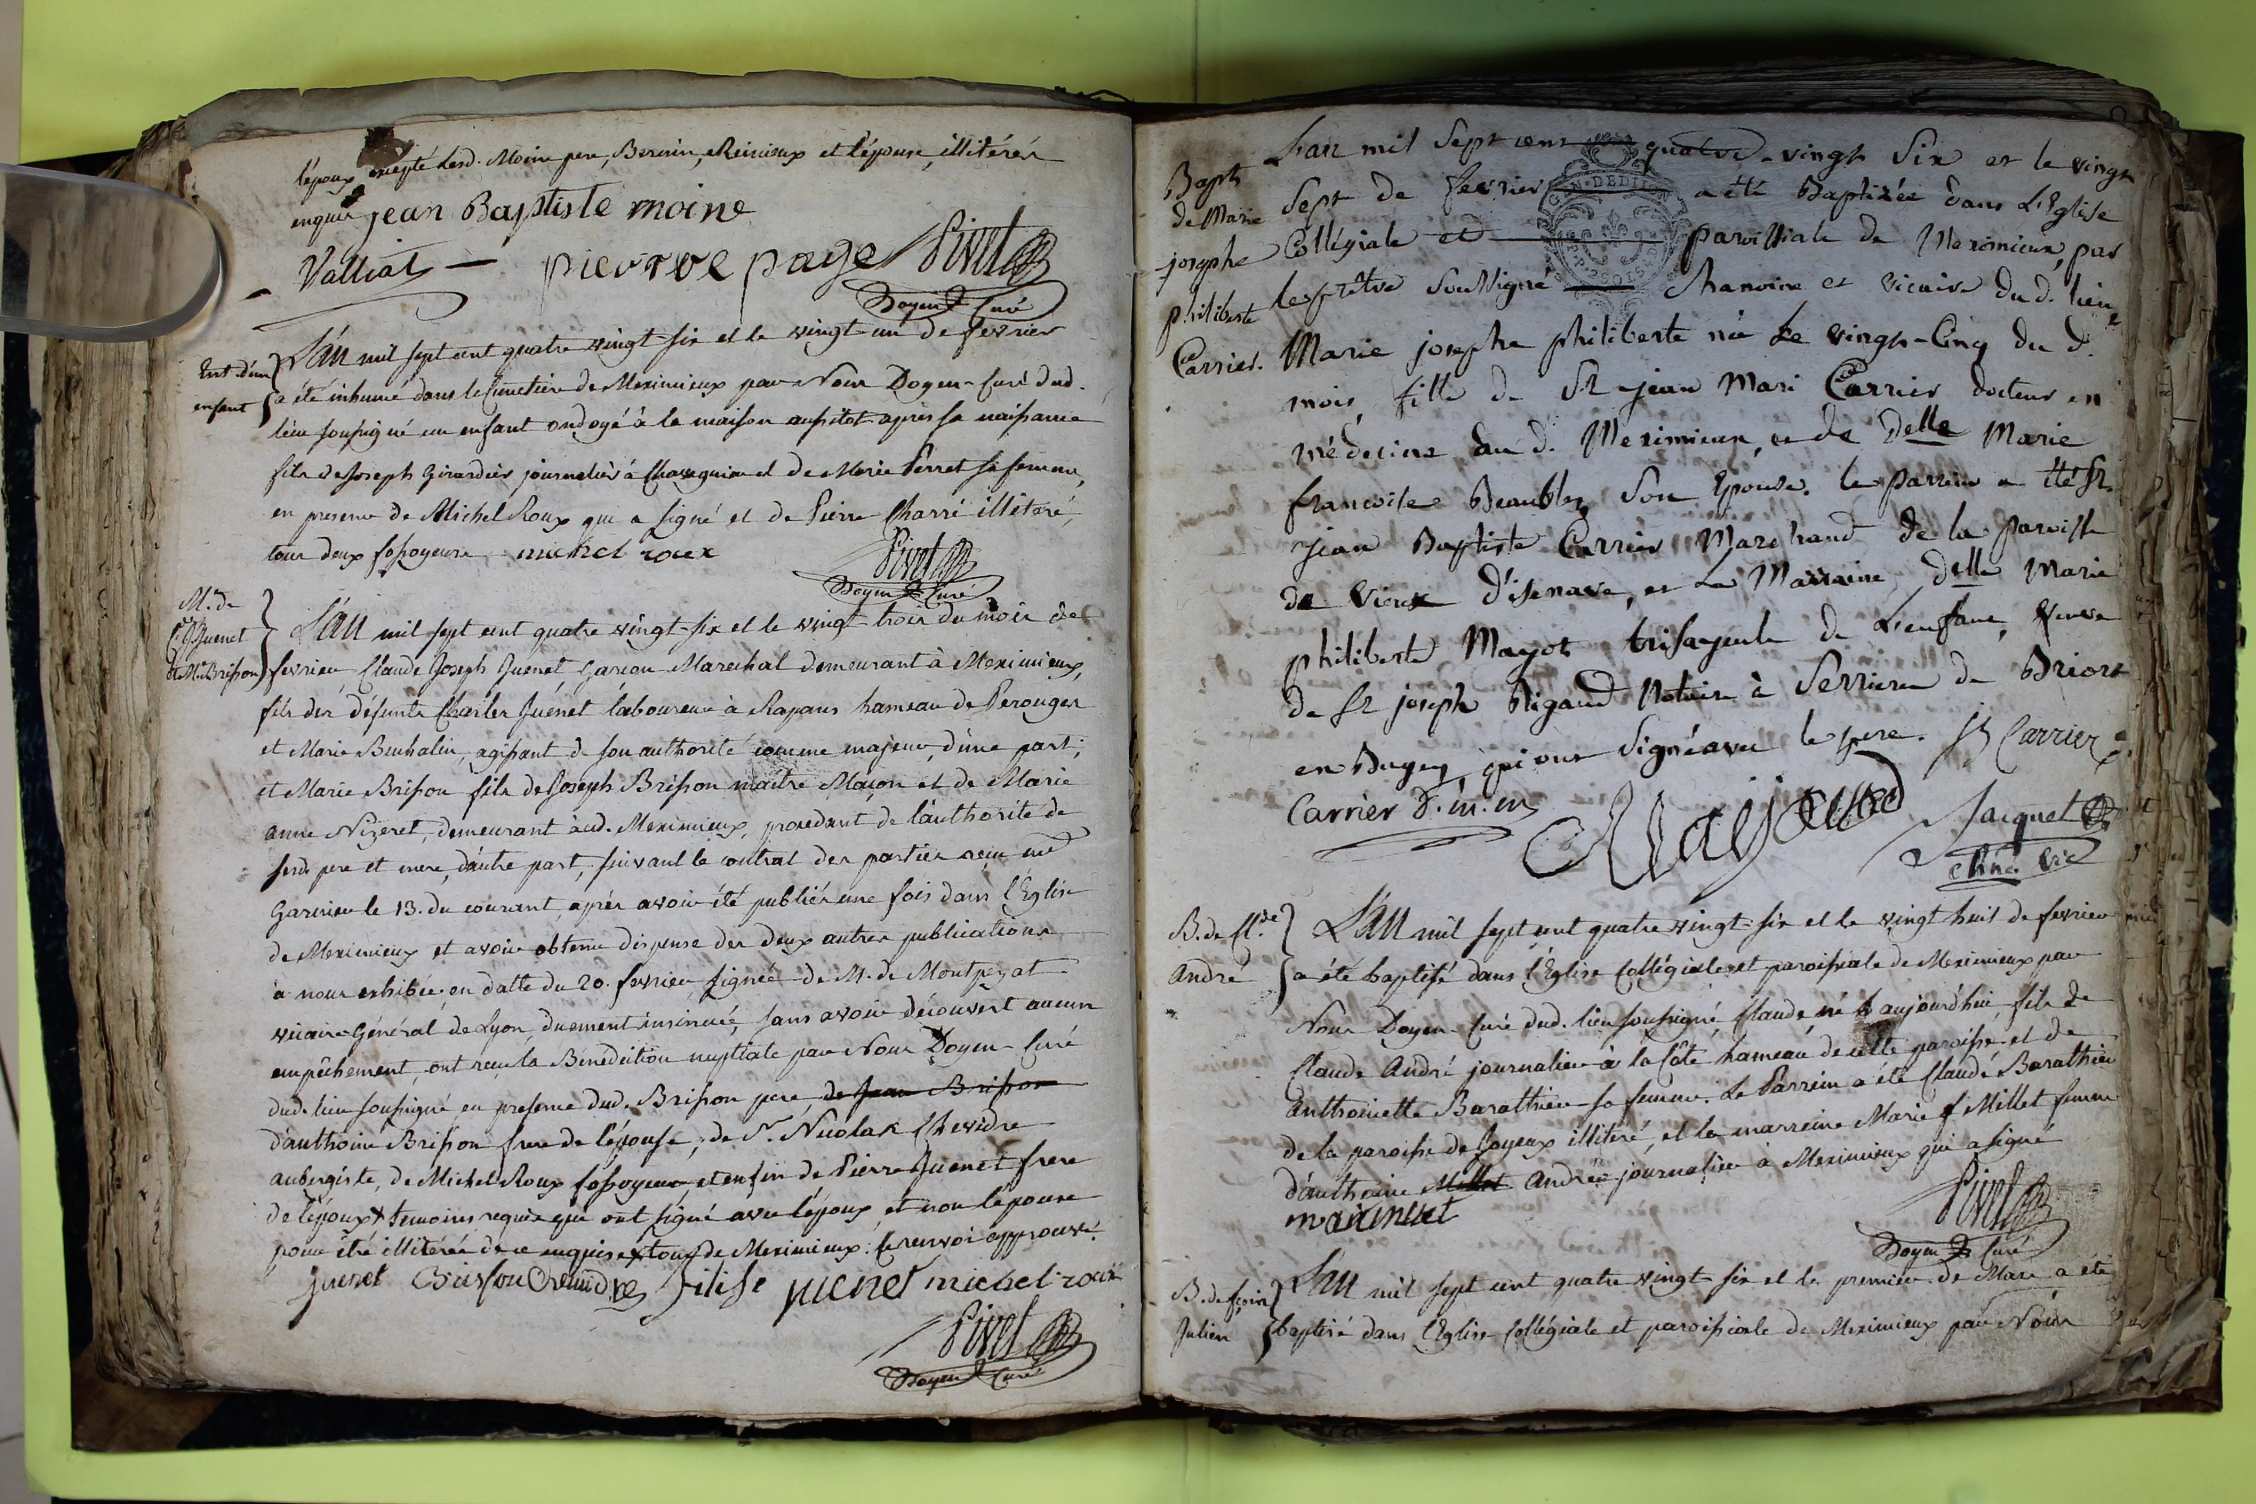 l'époux excepté lesd. Moine pere, Bernin, et l'épouse, illitérés
enquis jean Baptiste moine
Valliat pierre page Pivet
Doyen Curé
Ent. d'un enfant
L'an mil sept cent quatre vingt-six et le vingt-un de fevrier
a été inhumé dans le Cimetière de Meximieux par Nous Doyen-Curé dud.
lieu soussigné un enfant ondoyé à la maison aussitot après sa naissance
fils de Joseph Girardier journalier à et de Marie Perret sa femme,
en presence de Michel Roux qui a signé et de Pierre Charré illitéré,
tous deux fossoyeurs michel roux Pivet
Doyen Curé
M. de
Juenet
et M. Brisson
L'an mil sept cent quatre vingt-six et le vingt trois du mois de
fevrier Claude Joseph Juenet Garçon Marechal demeurant à Meximieux,
fils des défunts Charles Juenet laboureur à Rapans hameau de Perouges
et Marie agissant de son authorité comme majeur, d'une part;
et Marie Brisson fille de Joseph Brisson maitre Maçon et de Marie
anne Nizeret, demeurant aud. Meximieux, procedant de l'authorité de
sesd. pere et mere, d'autre part, suivant le contrat des parties reçu
le 13. du courant, après avoir été publiés une fois dans l'Eglise
de Meximieux et avoir obtenu dispense des deux autres publications
à nous exhibée en datte du 20. fevrier signée de M. de Montpeyat
vicaire-Général de Lyon, duement insinuée, sans avoir découvert aucun
empêchement, ont reçu la Bénédiction nuptiale par Nous Doyen-Curé
dud. lieu soussigné en presence dud. Brisson pere de Jean Brisson
d'anthoine Brisson frere de l'épouse, de Sr. Nicolas Chevidre
aubergiste, de Michel Roux fossoyeur, et enfin de Pierre Juenet frere
de l'époux temoins requis qui ont signé avec l'époux et non l'épouse
pour être illitérée de ce enquise, tous de Meximieux: le renvoi approuvé.
juenet Brisson juenet michel roux
Pivet
Doyen Curé
Bapt.
de Marie
josephe
philiberte
Carrier.
L'an mil sept cent quatre-vingt six et le vingt
sept de fevrier a été Baptisée dans L'Eglise
Collégiale et paroissiale de Meximieux, par
le prêtre soussigné Chanoine et vicaire du d. lieu,
Marie josephe philiberte née Le vingt-Cinq du d.
mois, fille de Sr jean Mari Carrier docteur en
médecine du d. Meximieux, et de Delle Marie
francoise son Epouse. le Parrein a été Sr.
jean Baptiste Carrier Marchand de la paroisse
de vieux d'isenave, et La Marraine, delle Marie
philiberte Mayot trisayeule de L'enfant, veuve
de Sr joseph Rigaud Notaire à Serriere de Briore
en Bugey, qui ont signé avec le pere. Carrier
Carrier d. m. m Jacquet
chne. vic.
B. de Cl.de
André
L'an mil sept cent quatre vingt-six et le vingt huit de fevrier
a été baptisé dans l'Eglise Collégiale et paroissiale de Meximieux par
Nous Doyen-Curé dud. lieu soussigné, Claude, né aujourd'hui, fils de
Claude André journalier à la Côte hameau de cette paroisse et de
anthoinette Barathieu sa femme. Le Parrein a été Claude Barathieu
de la paroisse de Joyeux illitéré, et la marreine Marie Millet femme
d'anthoine Millet André journalier à Meximieux qui a signé
Pivet
Doyen Curé
B. de
Julien
L'an mil sept cent quatre vingt-six et le premier de Mars a été
baptisé dans l'Eglise Collégiale et paroissiale de Meximieux par Nous